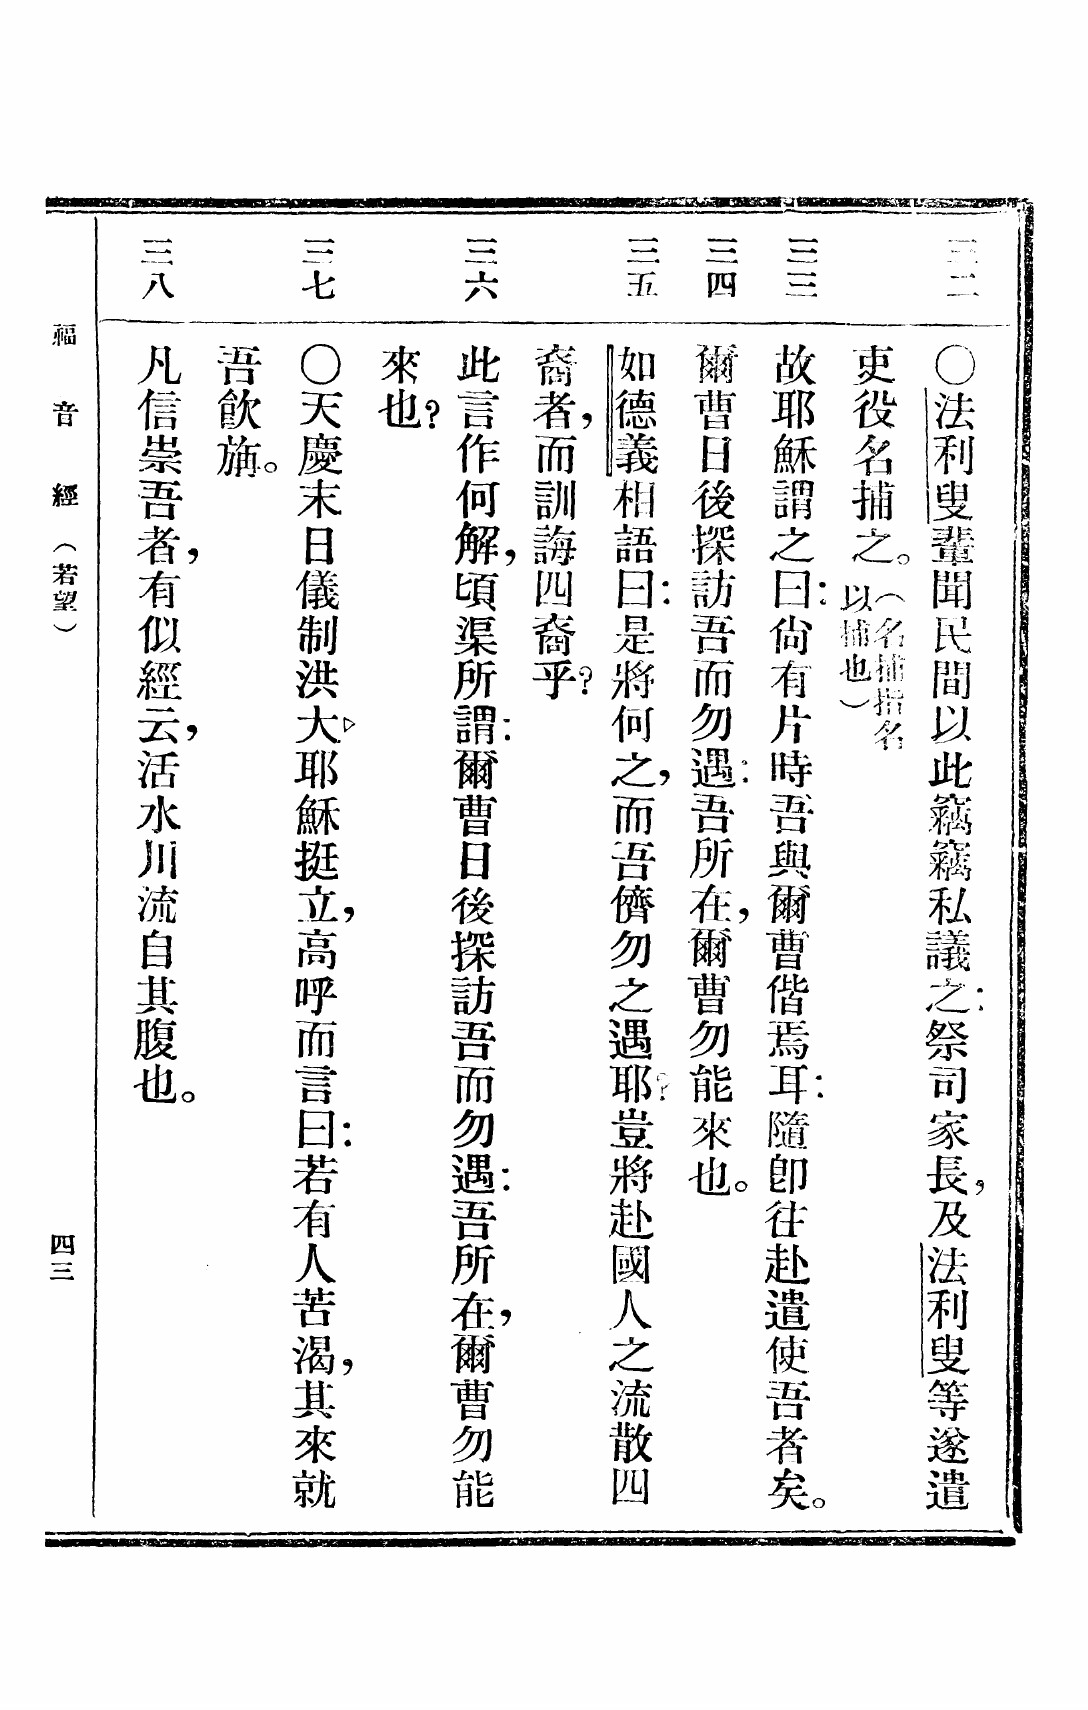 三二
〇法利叟輩聞民間以此竊竊私議之:祭司家長,及法利叟等遂遣
吏役名捕之。(名捕指名
以捕也)
三三
故耶穌謂之曰:尙有片時吾與爾曹偕焉耳:隨卽往赴遣使吾者矣。
三四
爾曹日後探訪吾而勿遇:吾所在,爾曹勿能來也。
三五
如德義相語曰:是將何之,而吾儕勿之遇耶?豈將赴國人之流散四
裔者,而訓誨四裔乎?
三六
此言作何解,頃渠所謂:爾曹日後探訪吾而勿遇:吾所在,爾曹勿能
來也?
三七
〇天慶末日儀制洪大▷耶穌挺立,高呼而言曰:若有人苦渴,其來就
吾飮㫋。
三八
凡信崇吾者,有似經云,活水川流自其腹也。
福音經(若望)
四三